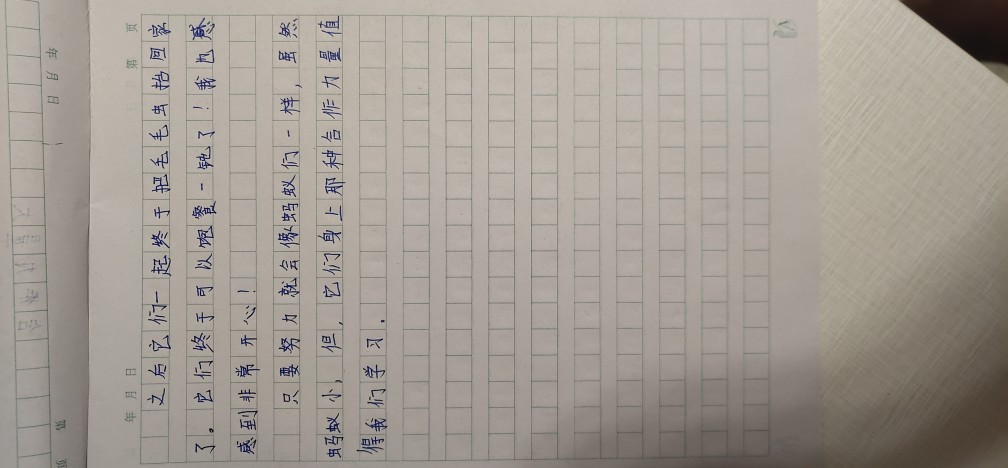 年 月 日
第 页
之后它们一起终于把毛毛虫抬回家
了。它们终于可以饱餐一顿了！我也感
感到非常开心！
只要努力就会像蚂蚁们一样，虽然
蚂蚁小，但，它们身上那种合作力量值
得我们学习.
年 月 日